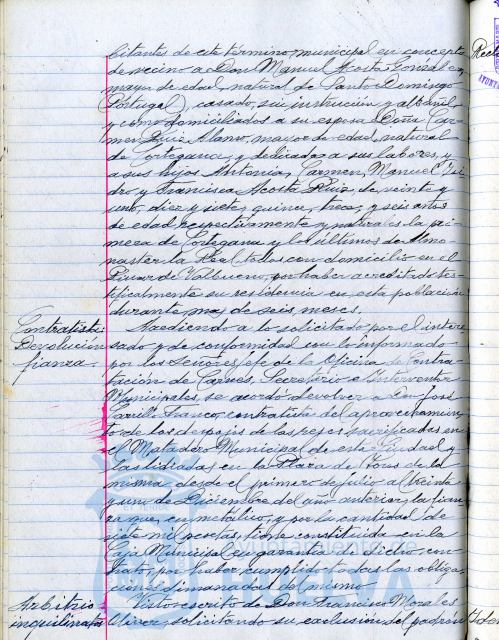 bitantes de este término municipal en concepto
de vecino a Don Manuel Acosta González,
mayor de edad, natural de Santo Domingo
(Portugal), casado, sin instrucción y albañil
y como domiciliados a su esposa Doña Car-
men Ruiz Alamo, mayor de edad, natural
de Cortegana, y dedicada a sus labores, y
a sus hijos Antonia, Carmen, Manuel, Isi-
dro y Francisca Acosta Ruiz, de veinte y
uno, diez y siete, quince, trece, y seis años
de edad respectivamente y naturales la pri-
mera de Cortegana y los últimos de Almo-
naster la Real, todos con domicilio en el
Pinar de Valbueno, por haber acreditado tes-
tificalmente su residencia en esta población
durante mas de seis meses.
Contratista:
Devolución
fianza.
Accediendo a lo solicitado por el intere-
sado y de conformidad con lo informado
por los Señores Jefe de la Oficina de Contra-
tación de Carnes, Secretario e Interventor
Municipales, se acordó devolver a Don José
Carrillo Franco, contratista del aprovechamien-
to de los despojos de las reses sacrificadas en
el Matadero Municipal de esta Ciudad y
las lidiadas en la Plaza de Toros de la
misma desde el primero de julio al treinta
y uno de Diciembre del año anterior, la fian-
za que, en metálico, y por la cantidad de
siete mil pesetas, tiene constituida en la
Caja Municipal en garantía de dicho con-
trato, por haber cumplido todas las obliga-
ciones dimanadas del mismo.
Arbitrio
inquilinato
Visto escrito de Don Francisco Morales
Oliver, solicitando su exclusión del padron
HUELVA